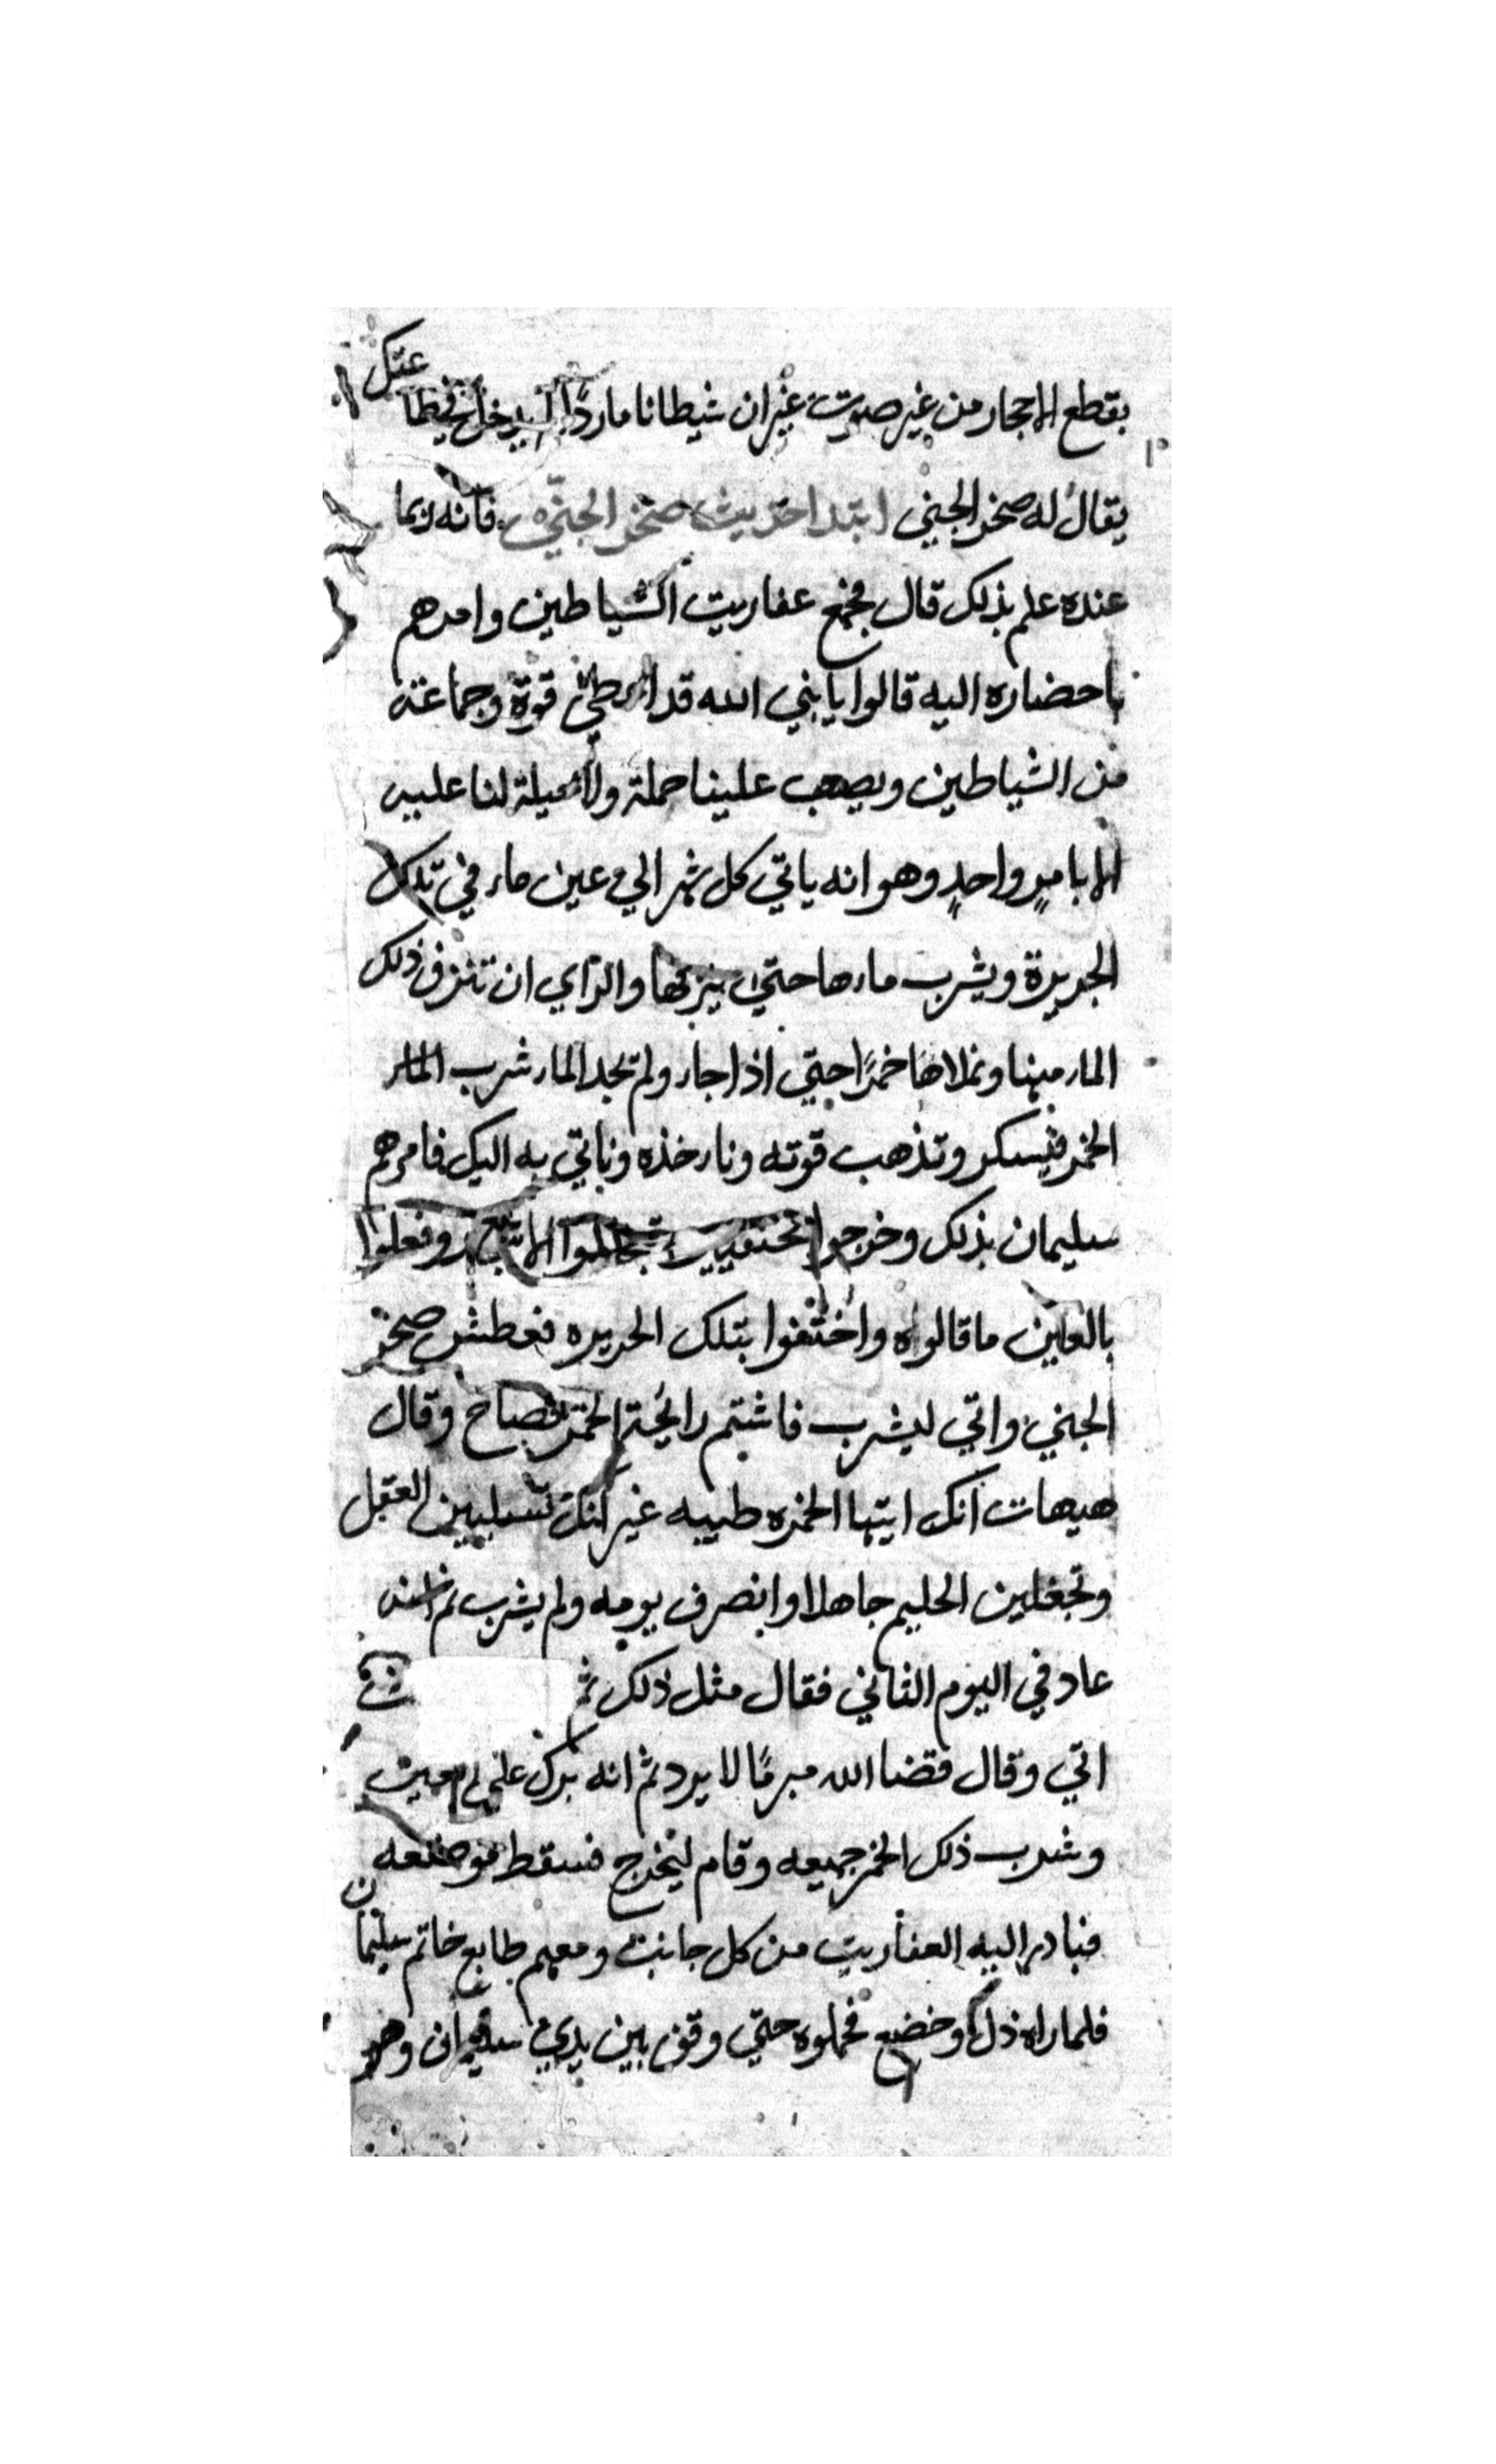 بقطع الاحجار من غير صوت غير ان شيطانا ماردًا
يقال له صخر الجني ابتدا حديث صخر الجني فانه ربما
عنده علم بذلك قال فجمع عفاريت الشياطين وامرهم
باحضاره اليه قالوا يا نبي الله قد قوة وجماعة
من الشياطين ويصعب علينا حمله ولا حيلة لنا عليه
الا بامرٍ واحدٍ وهو انه ياتي كل شهر الي عين ماء في تلك
الجزيرة ويشرب ماءها حتي ينزحها والراي ان تنزف ذلك
الماء منها ونملاها خمرًا حتي اذا جاء ولم تجد الماء شرب الماء
الخمر فيسكر وتذهب قوته وناءخذه وناتي به اليك فامرهم
سليمان بذلك وخرجوا وفعلوا
بالعاين ما قالوه واختفوا بتلك الجزيره فعطش صخر
الجني واتي ليشرب فاشتم رايحة الخمر فصاح وقال
هيهات انك ايتها الخمره طيبه غير انك تسلبين العقل
وتجعلين الحليم جاهلا وانصرف يومه ولم يشرب ثم انه
عاد في اليوم الثاني فقال مثل ذلك ثم
اتي وقال قضا الله مبرمًا لا يرد ثم انه برك علي
وشرب ذلك الخمر جميعه وقام ليخرج فسقط موضعه
فبادر اليه العفاريت من كل جانب ومعهم طابع خاتم سليمان
فلما راه ذل وخضع فحملوه حتي وقف بين يدي سليمان وهو